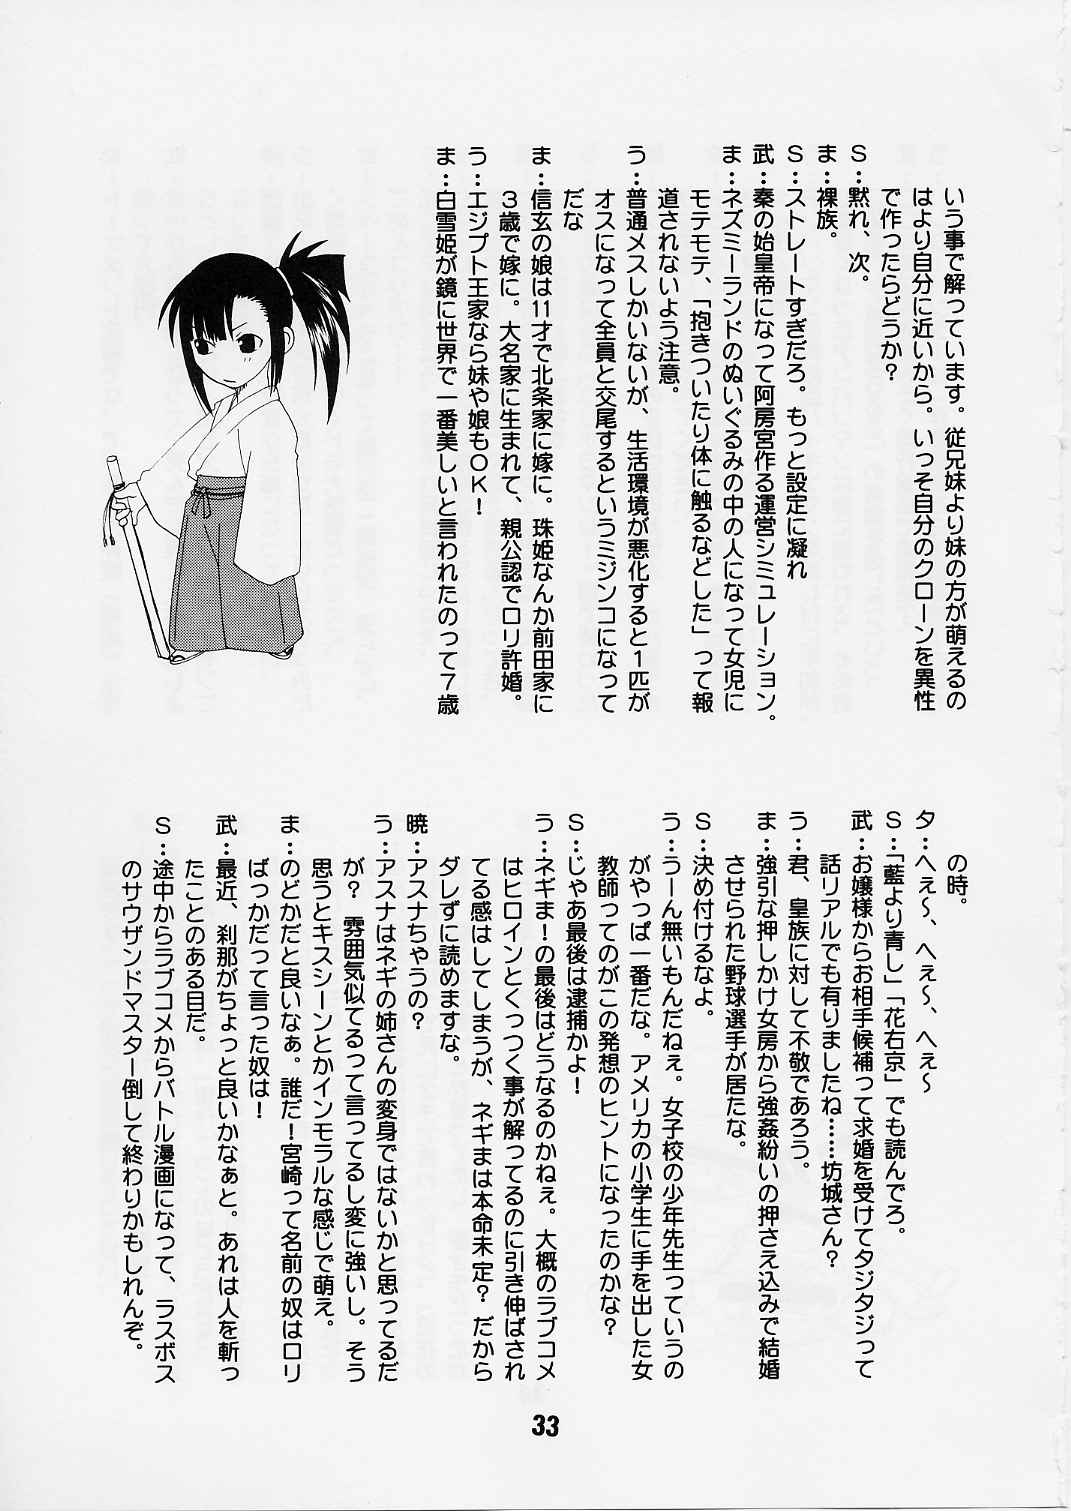 いう事で解っています。従兄妹より妹の方が萌えるの
はより自分に近いから。いっそ自分のクローンを異性
で作ったらどうか?
S:黙れ、次。
ま:裸族。
S:ストレートすぎだろ。もっと設定に凝れ
武:秦の始皇帝になって阿房宮作る運営シミュレーション。
ま:ネズミーランドのぬいぐるみの中の人になって女児に
モテモテ、「抱きついたり体に触るなどした」って報
道されないよう注意。
う:普通メスしかいないが、生活環境が悪化すると1匹が
オスになって全員と交尾するというミジンコになって
だな
ま:信玄の娘は11才で北条家に嫁に。珠姫なんか前田家に
3歳で嫁に。大名家に生まれて、親公認でロリ許婚。
う:エジプト王家なら妹や娘もOK!
ま:白雪姫が鏡に世界で一番美しいと言われたのって7歳
の時。
夕:へぇ〜、へぇ〜、へぇ〜
S:「藍より青し」「花右京」でも読んでろ。
武:お嬢様からお相手候補って求婚を受けてタジタジって
話リアルでも有りましたね……坊城さん?
う:君、皇族に対して不敬であろう。
ま:強引な押しかけ女房から強姦紛いの押さえ込みで結婚
させられた野球選手が居たな。
S:決め付けるなよ。
う:うーん無いもんだねぇ。女子校の少年先生っていうの
がやっぱ一番だな。アメリカの小学生に手を出した女
教師ってのがこの発想のヒントになったのかな?
S:じゃあ最後は逮捕かよ!
う:ネギま!の最後はどうなるのかねぇ。大概のラブコメ
はヒロインとくっつく事が解ってるのに引き伸ばされ
てる感はしてしまうが、ネギまは本命未定?だから
ダレずに読めますな。
暁:アスナちゃうの?
う:アスナはネギの姉さんの変身ではないかと思ってるだ
が? 雰囲気似てるって言ってるし変に強いし。そう
思うとキスシーンとかインモラルな感じで萌え。
ま:のどかだと良いなぁ。誰だ!宮崎って名前の奴はロリ
ばっかだって言った奴は!
武:最近、刹那がちょっと良いかなぁと。あれは人を斬っ
たことのある目だ。
S:途中からラブコメからバトル漫画になって、ラスボス
のサウザンドマスター倒して終わりかもしれんぞ。
33